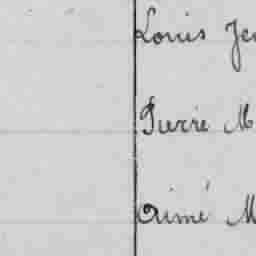 Louis Je
Pierre M
Aimé M